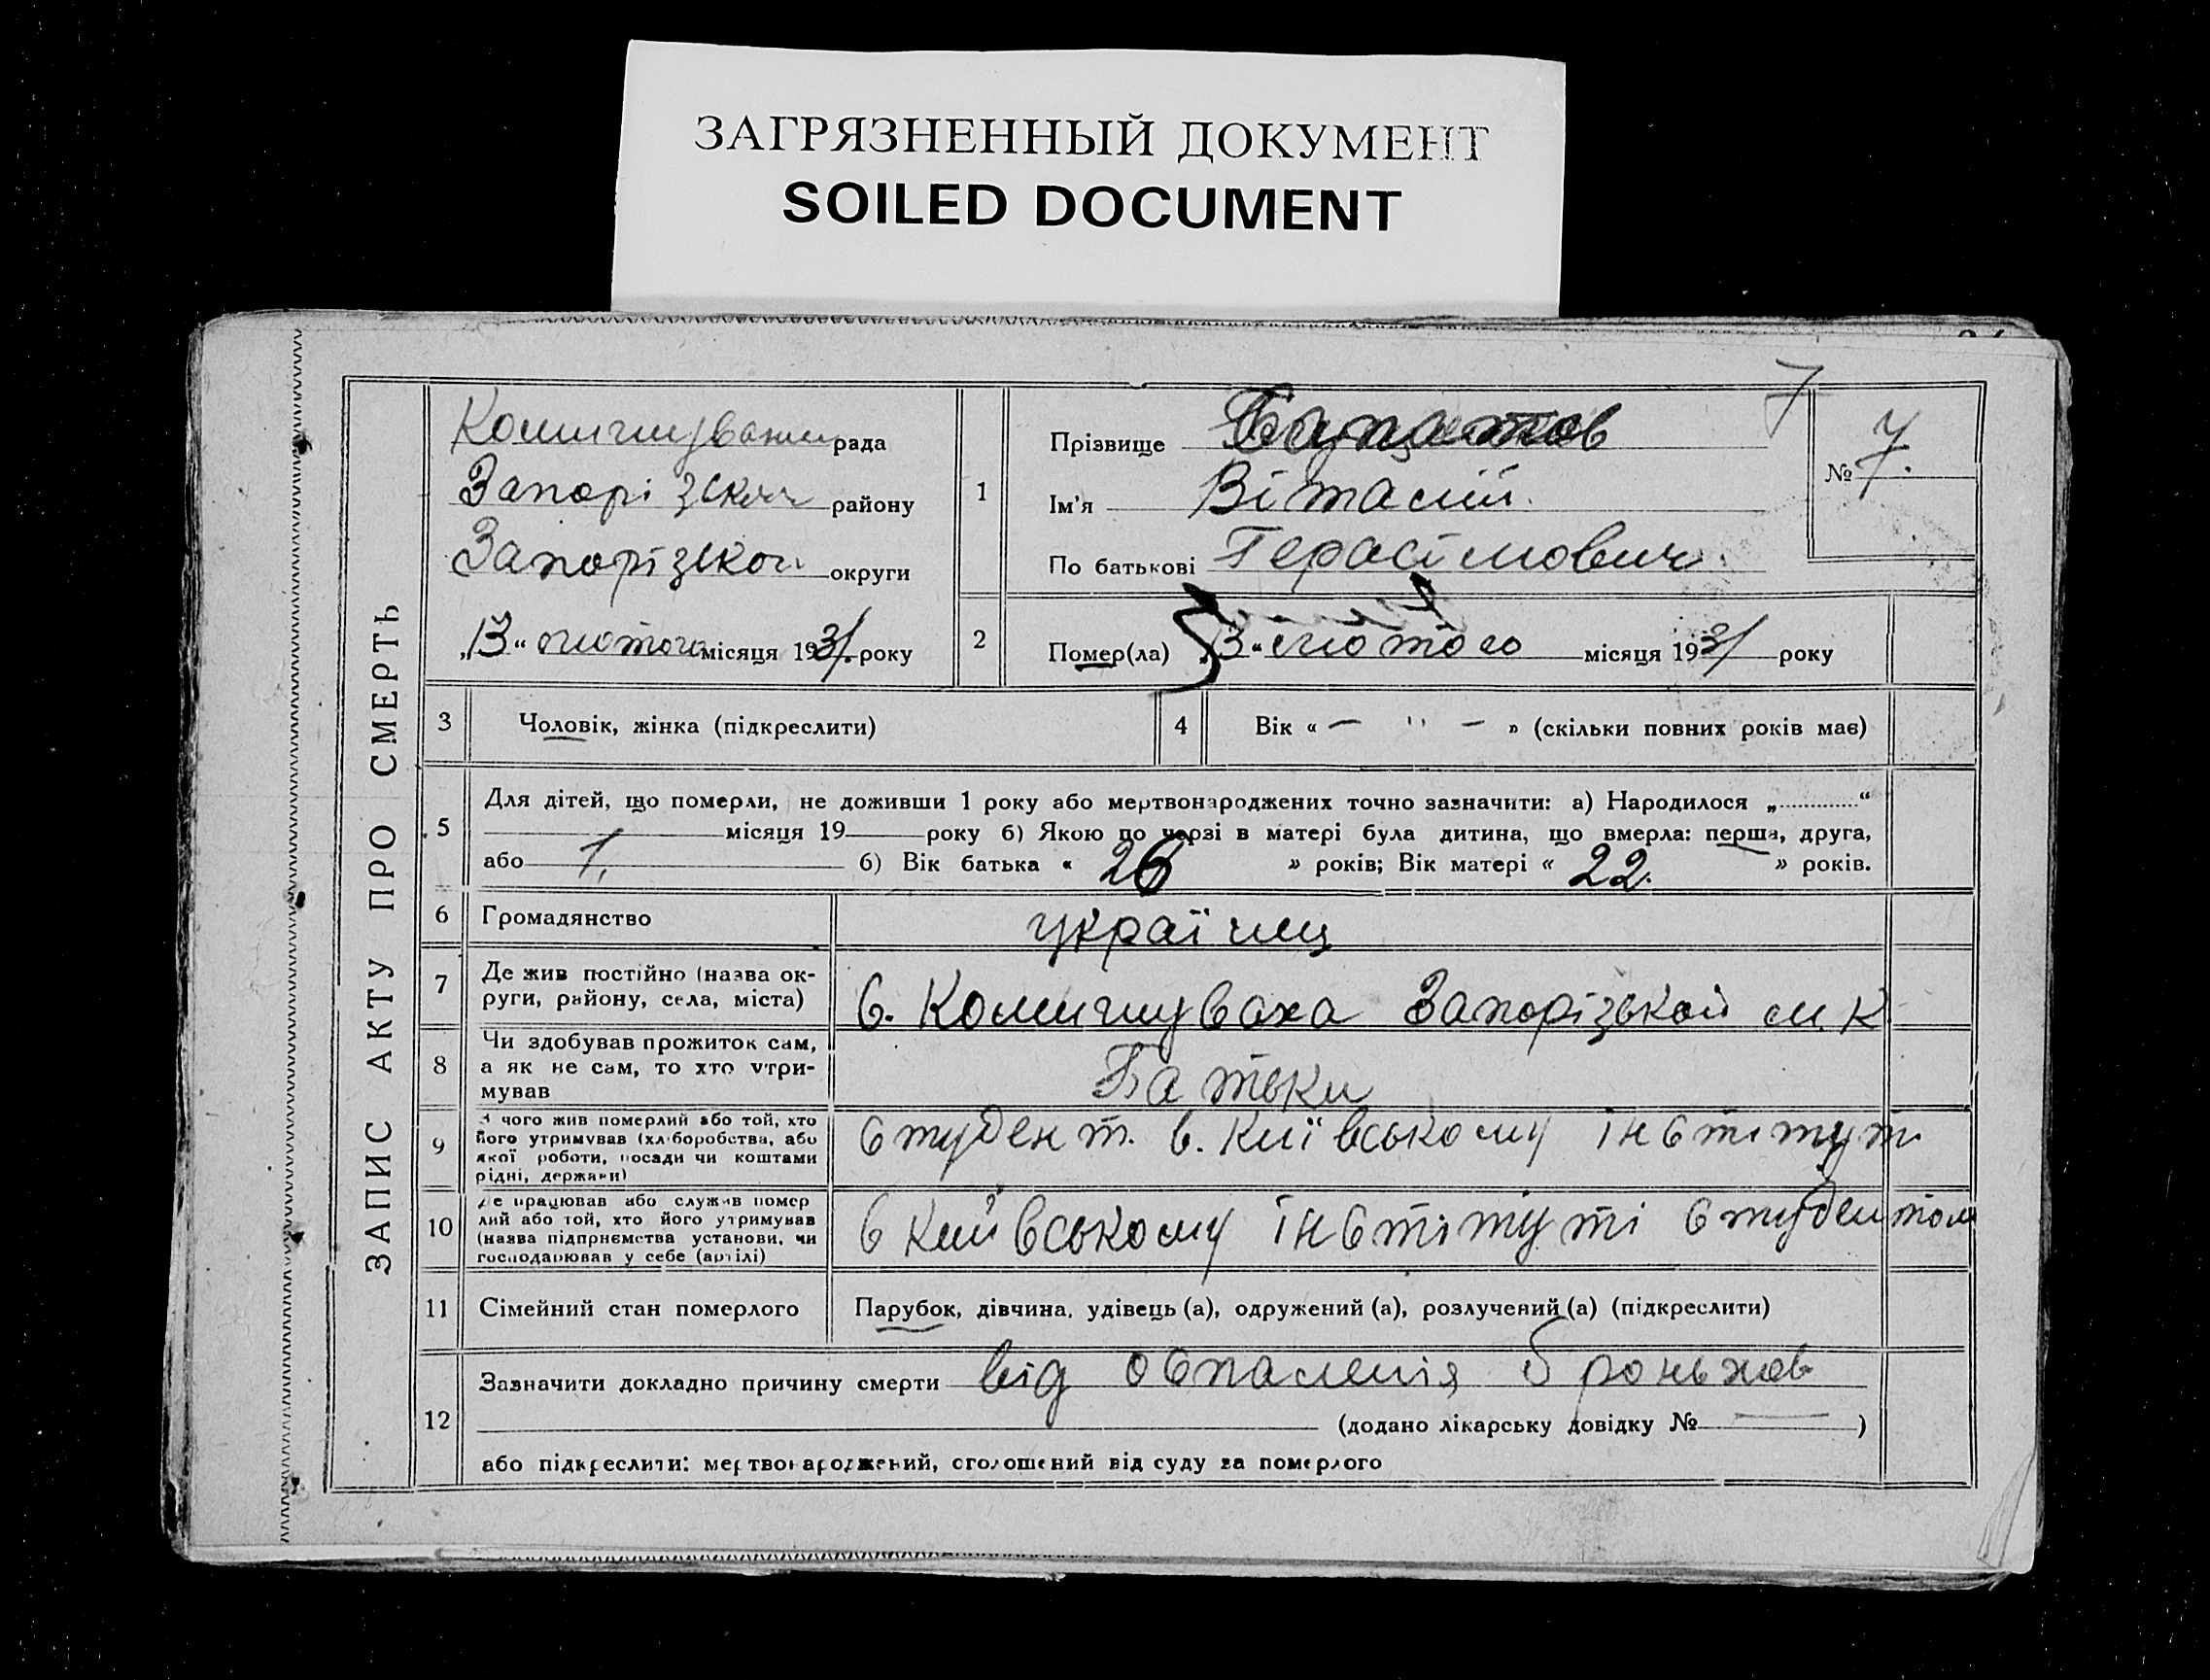 ЗАГРЯЗНЕННЫЙ ДОКУМЕНТ
SOILED DOCUMENT
ЗАПИС АКТУ ПРО СМЕРТЬ
7
рада
Запорізскої району
Запорізкої округи
„13“ лютого місяця 1931 року
1
Прізвище
Ім'я Віталій.
По батькові Герасімович
№ 7.
2
Помер(ла) 3 “ лютого місяця 1931 року
3
Чоловік, жінка (підкреслити)
4
Вік « — " — » (скільки повних років має)
5
Для дітей, що померли, не доживши 1 року або мертвонароджених точно зазначити: а) Народилося „ “
місяця 19 року б) Якою по черзі в матері була дитина, що вмерла: перша, друга,
або 1. б) Вік батька « 26 » років; Вік матері « 22. » років.
6
Громадянство
україниц
7
Де жив постійно (назва ок-
руги, району, села, міста)
с. Комишуваха Запорізької м. К
8
Чи здобував прожиток сам,
а як не сам, то хто утри-
мував
Батьки
9
З чого жив померлий або той, хто
його утримував (хліборобства, або
якої роботи, посади чи коштами
рідні, держави)
студент. в. Київському інститут
10
Де працював або служив помер
лий або той, хто його утримував
(назва підпрнємства установи, чи
господарював у себе (артілі)
в Київському інституті студентом
11
Сімейний стан померлого
Парубок, дівчина, удівець (а), одружений (а), розлучений (а) (підкреслити)
12
Зазначити докладно причину смерти від оспаленія броньхов
(додано лікарську довідку № — )
або підкреслити: мертвонароджений, оголошений від суду за померлого